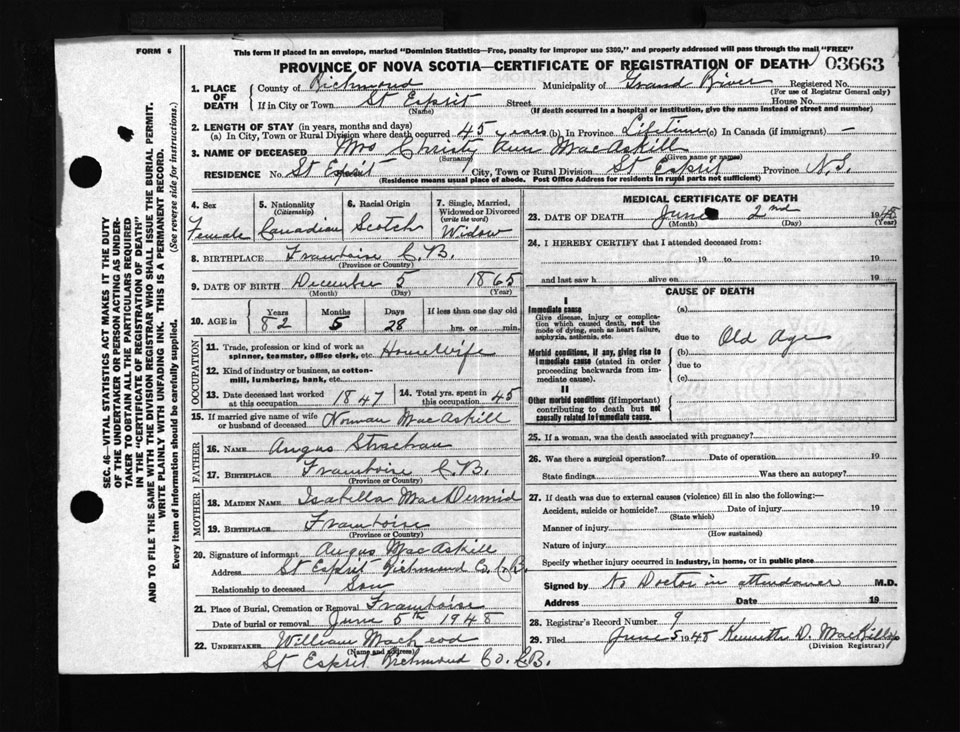 FORM 6
This form if placed in an envelope, marked "Dominion Statistics—Free, penalty for improper use $300," and properly addressed will pass through the mail "FREE"
PROVINCE OF NOVA SCOTIA—CERTIFICATE OF REGISTRATION OF DEATH
03663
1. PLACE OF DEATH
County of Richmond Municipality of Grand River Registered No.
(For use of Registrar General only)
If in City or Town St Esprit Street House No.
(Name) (If death occurred in a hospital or institution, give the name instead of street and number)
2. LENGTH OF STAY (in years, months and days)
(a) In City, Town or Rural Division where death occurred 45 years (b) In Province Lifetime (c) In Canada (if immigrant) —
3. NAME OF DECEASED Mrs Christy Ann MacAskill
(Surname) (Given name or names)
RESIDENCE No. St Esprit City, Town or Rural Division St Esprit Province N.S.
(Residence means usual place of abode. Post Office Address for residents in rural parts not sufficient)
4. Sex Female
5. Nationality (Citizenship) Canadian
6. Racial Origin Scotch
7. Single, Married, Widowed or Divorced (write the word) Widow
8. BIRTHPLACE Framboise C.B.
(Province or Country)
9. DATE OF BIRTH December 5 1865
(Month) (Day) (Year)
10. AGE in Years Months Days If less than one day old
82 5 28 hrs. or min.
OCCUPATION
11. Trade, profession or kind of work as spinner, teamster, office clerk, etc. House Wife
12. Kind of industry or business, as cotton-mill, lumbering, bank, etc.
13. Date deceased last worked at this occupation 1847
14. Total yrs. spent in this occupation 45
15. If married give name of wife or husband of deceased Norman MacAskill
FATHER
16. NAME Angus Strachan
17. BIRTHPLACE Framboise C.B.
(Province or Country)
MOTHER
18. MAIDEN NAME Isabella MacDermid
19. BIRTHPLACE Framboise
(Province or Country)
20. Signature of informant Angus MacAskill
Address St Esprit Richmond Co. C.B.
Relationship to deceased Son
21. Place of Burial, Cremation or Removal Framboise
Date of burial or removal June 5th 1948
22. UNDERTAKER William MacLeod
(Name and address)
St Esprit Richmond Co. C.B.
MEDICAL CERTIFICATE OF DEATH
23. DATE OF DEATH June 2nd 1948
(Month) (Day) (Year)
24. I HEREBY CERTIFY that I attended deceased from:
19 to 19
and last saw h alive on 19
CAUSE OF DEATH
I
Immediate cause
Give disease, injury or complication which caused death, not the mode of dying, such as heart failure, asphyxia, asthenia, etc.
(a)
due to
Morbid conditions, if any, giving rise to immediate cause (stated in order proceeding backwards from immediate cause).
(b) Old Age
due to
(c)
II
Other morbid conditions (if important) contributing to death but not causally related to immediate cause.
25. If a woman, was the death associated with pregnancy?
26. Was there a surgical operation? Date of operation 19
State findings Was there an autopsy?
27. If death was due to external causes (violence) fill in also the following:—
Accident, suicide or homicide? Date of injury 19
(State which)
Manner of injury
(How sustained)
Nature of injury
Specify whether injury occurred in industry, in home, or in public place
Signed by No Doctor in attendance M.D.
Address Date 19
28. Registrar's Record Number 9
29. Filed June 5 1948 Kenneth D. MacKillop
(Division Registrar)
SEC. 46—VITAL STATISTICS ACT MAKES IT THE DUTY
OF THE UNDERTAKER OR PERSON ACTING AS UNDER-
TAKER TO OBTAIN ALL THE PARTICULARS REQUIRED
IN THE "CERTIFICATE OF REGISTRATION OF DEATH"
AND TO FILE THE SAME WITH THE DIVISION REGISTRAR WHO SHALL ISSUE THE BURIAL PERMIT.
WRITE PLAINLY WITH UNFADING INK. THIS IS A PERMANENT RECORD.
Every item of information should be carefully supplied. (See reverse side for instructions.)